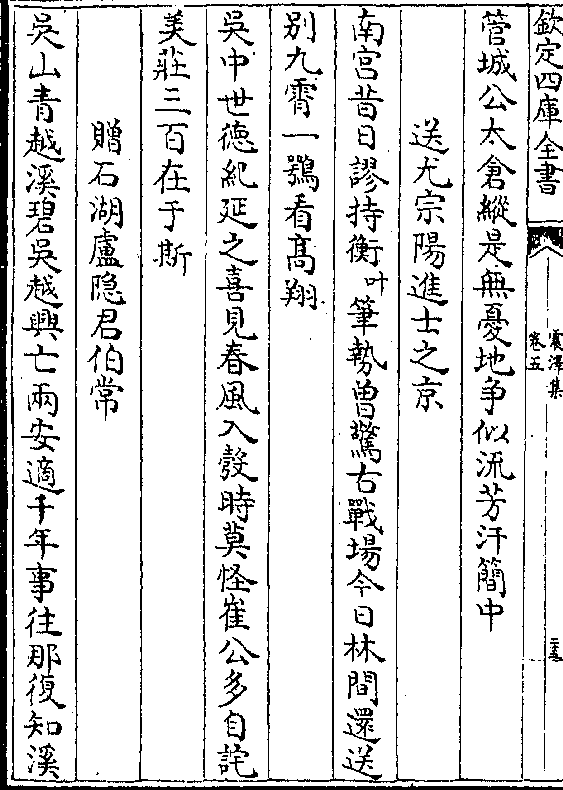 欽定四庫全書
震澤集
卷五
二十五
管城公太倉縱是無憂地争似流芳汗簡中
送尤宗陽進士之京
南宫昔日謬持衡叶筆勢曽驚古戰場今日林間還送
别九霄一鶚看髙翔
吳中世徳紀延之喜見春風入彀時莫怪崔公多自詫
美莊三百在于斯
贈石湖盧隐君伯常
吳山青越溪碧吳越興亡兩安適千年事往那復知溪